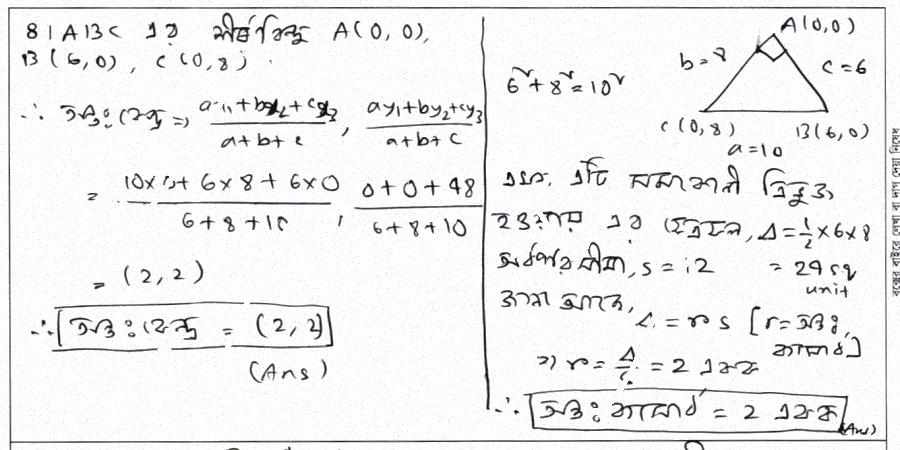 8। ABC এর শীর্ষবিন্দু A(0, 0),
B(6, 0), C(0, 8).
∴ অন্তঃকেন্দ্র ⇒ ax₁+bx₂+cx₃ / a+b+c , ay₁+by₂+cy₃ / a+b+c
= 10×0+6×8+6×0 / 6+8+10 , 0+0+48 / 6+8+10
= (2, 2)
∴ অন্তঃকেন্দ্র = (2, 2)
(Ans)
A(0,0)
b=8
c=6
6²+8²=10²
C(0,8)
B(6,0)
a=10
এটি সমকোণী ত্রিভুজ,
এর ক্ষেত্রফল, Δ = ½×6×8
অর্ধপরিসীমা, s = 12
= 24 sq
unit
জানা আছে,
Δ = rs [r = অন্তঃ
ব্যাসার্ধ]
⇒ r = Δ/s = 2 একক
∴ অন্তঃব্যাসার্ধ = 2 একক
(Ans)
বক্সের বাইরে লেখা বা দাগ দেয়া নিষেধ